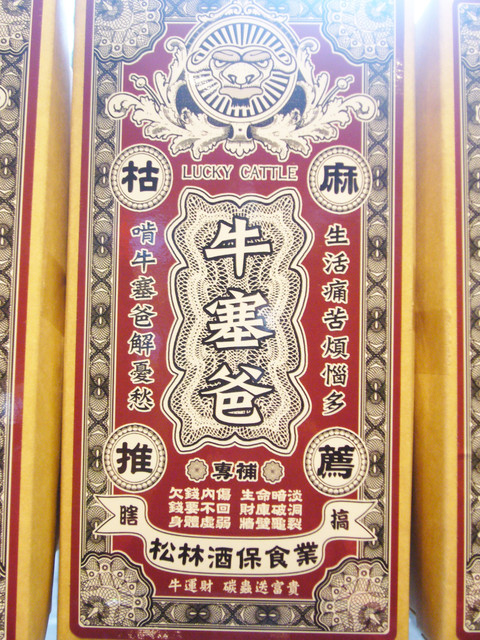 LUCKY CATTLE
麻枯
牛塞爸
生活痛苦煩惱多
啃牛塞爸解憂愁
薦推
專補
欠錢內傷 生命暗淡
錢要不回 財庫破洞
身體虛弱 牆壁龜裂
瞎搞
松林酒保食業
牛運財 碳蟲送富貴